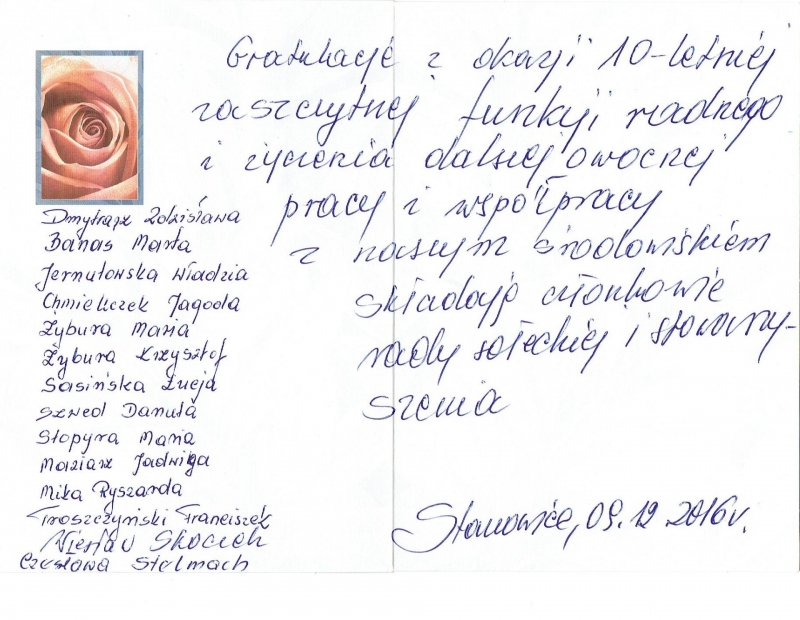 Gratulacje z okazji 10-letniej
zaszczytnej funkcji radnego
i życzenia dalszej owocnej
pracy i współpracy
z naszym środowiskiem
składają członkowie
rady sołeckiej i stowarzy-
szenia
Stanowice, 09.12.2016r.
Dmytrasz Zdzisława
Banas Marta
Jernutowska Władzia
Chmieluczek Jagoda
Żybura Maria
Żybura Krzysztof
Sasińska Łucja
Szwed Danuta
Stopyra Maria
Maziarz Jadwiga
Mika Ryszarda
Troszczyński Franciszek
Wiesław Skoczek
Czesława Stelmach